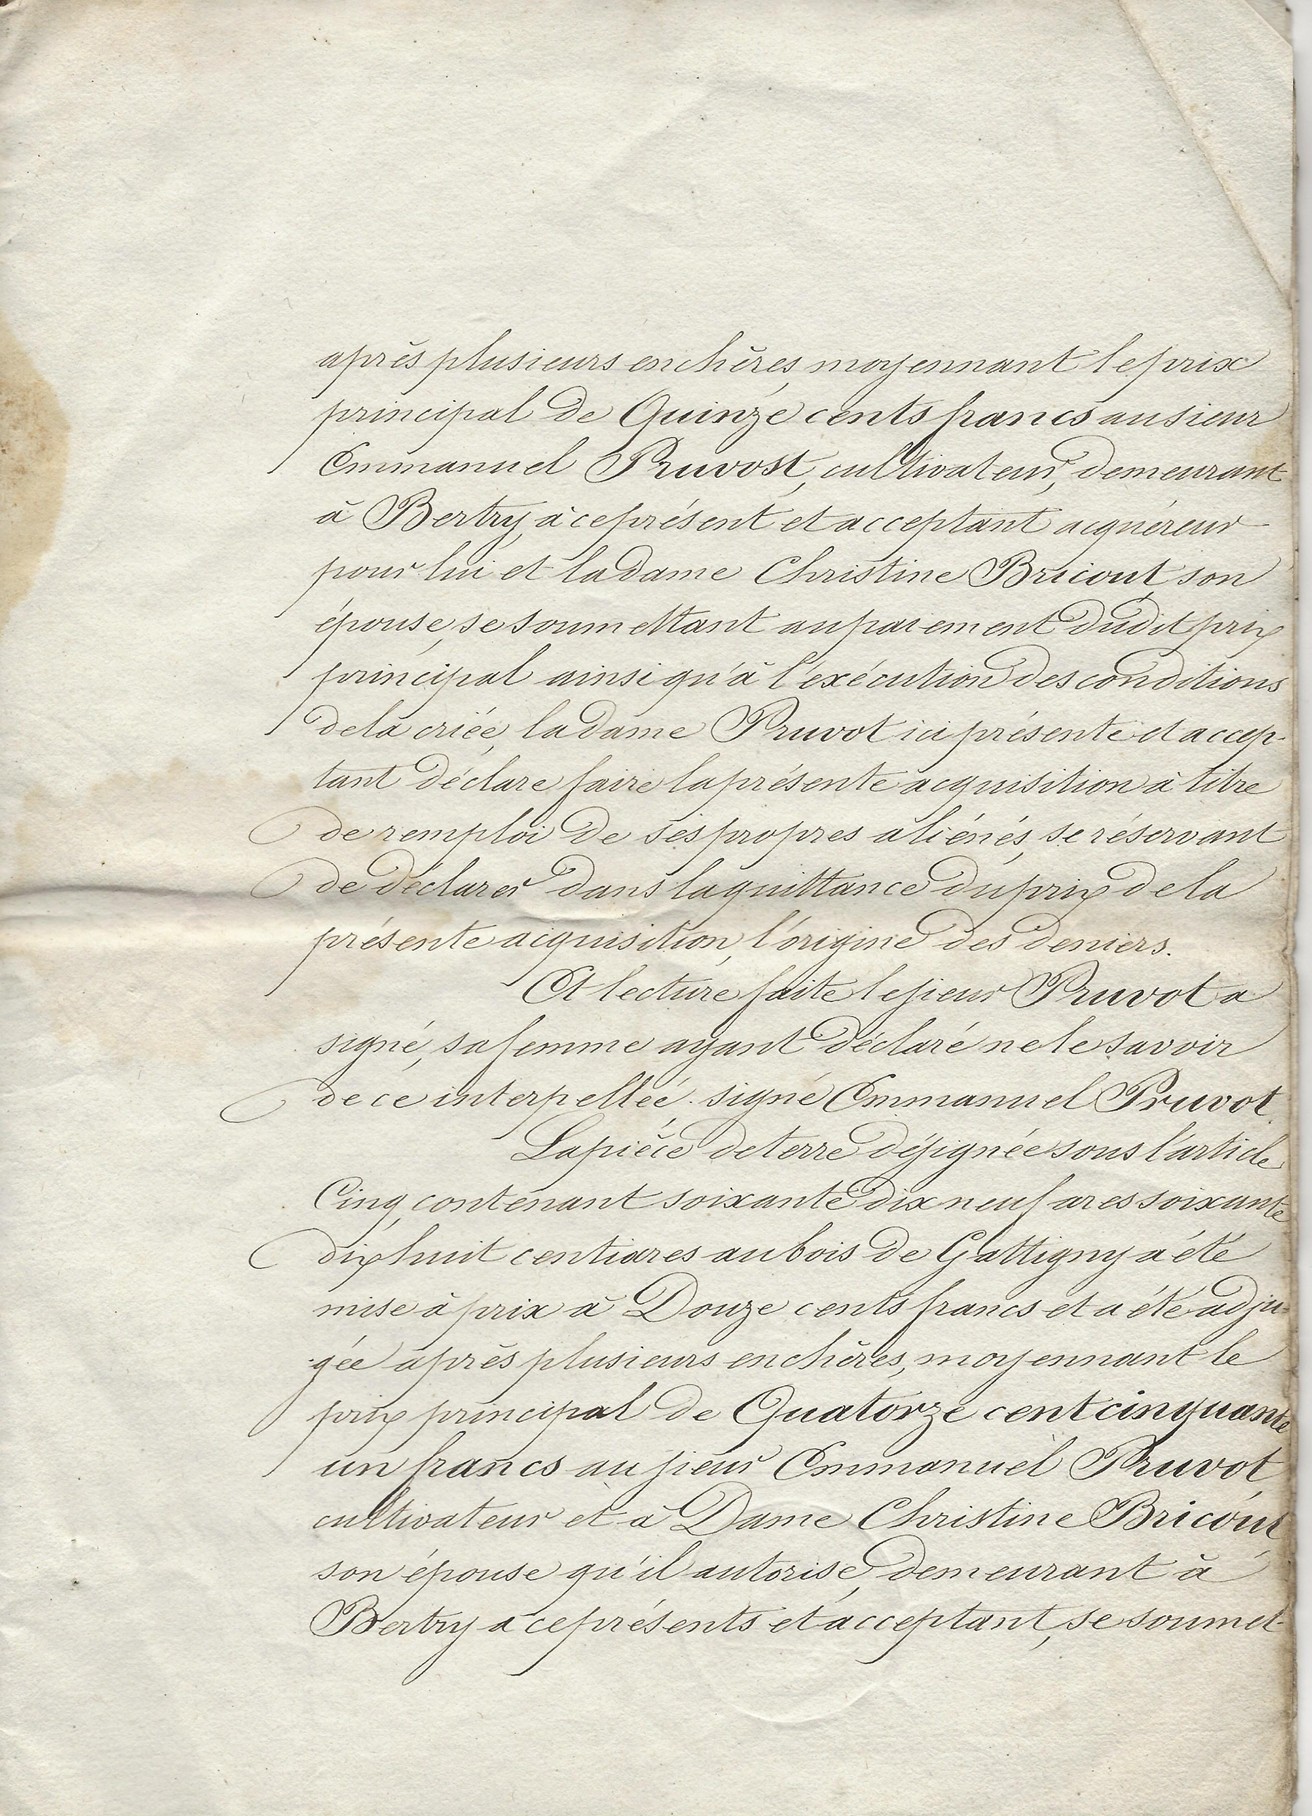 après plusieurs enchères, moyennant le prix
principal de Quinze cents francs au sieur
Emmanuel Pruvost, cultivateur, demeurant
à Bertry, à ce présent et acceptant acquéreur
pour lui et la dame Christine Bricout, son
épouse, se soumettant au paiement dudit prix
principal ainsi qu'à l'exécution des conditions
de la criée, la dame Pruvot ici présente et accep-
tant déclare faire la présente acquisition à titre
de remploi de ses propres aliénés, se réservant
de déclarer dans la quittance du prix de la
présente acquisition, l'origine des deniers.
Et lecture faite le sieur Pruvot a
signé, sa femme ayant déclaré ne le savoir
de ce interpellée. signé Emmanuel Pruvot.
La pièce de terre désignée sous l'article
Cinq, contenant soixante dix neuf ares soixante
dix huit centiares au bois de Gattigny a été
mise à prix à Douze cents francs et a été adju-
gée après plusieurs enchères, moyennant le
prix principal de Quatorze cent cinquante
un francs au sieur Emmanuel Pruvot
cultivateur et à Dame Christine Bricout
son épouse qu'il autorise, demeurant à
Bertry à ce présents et acceptant, se soumet-